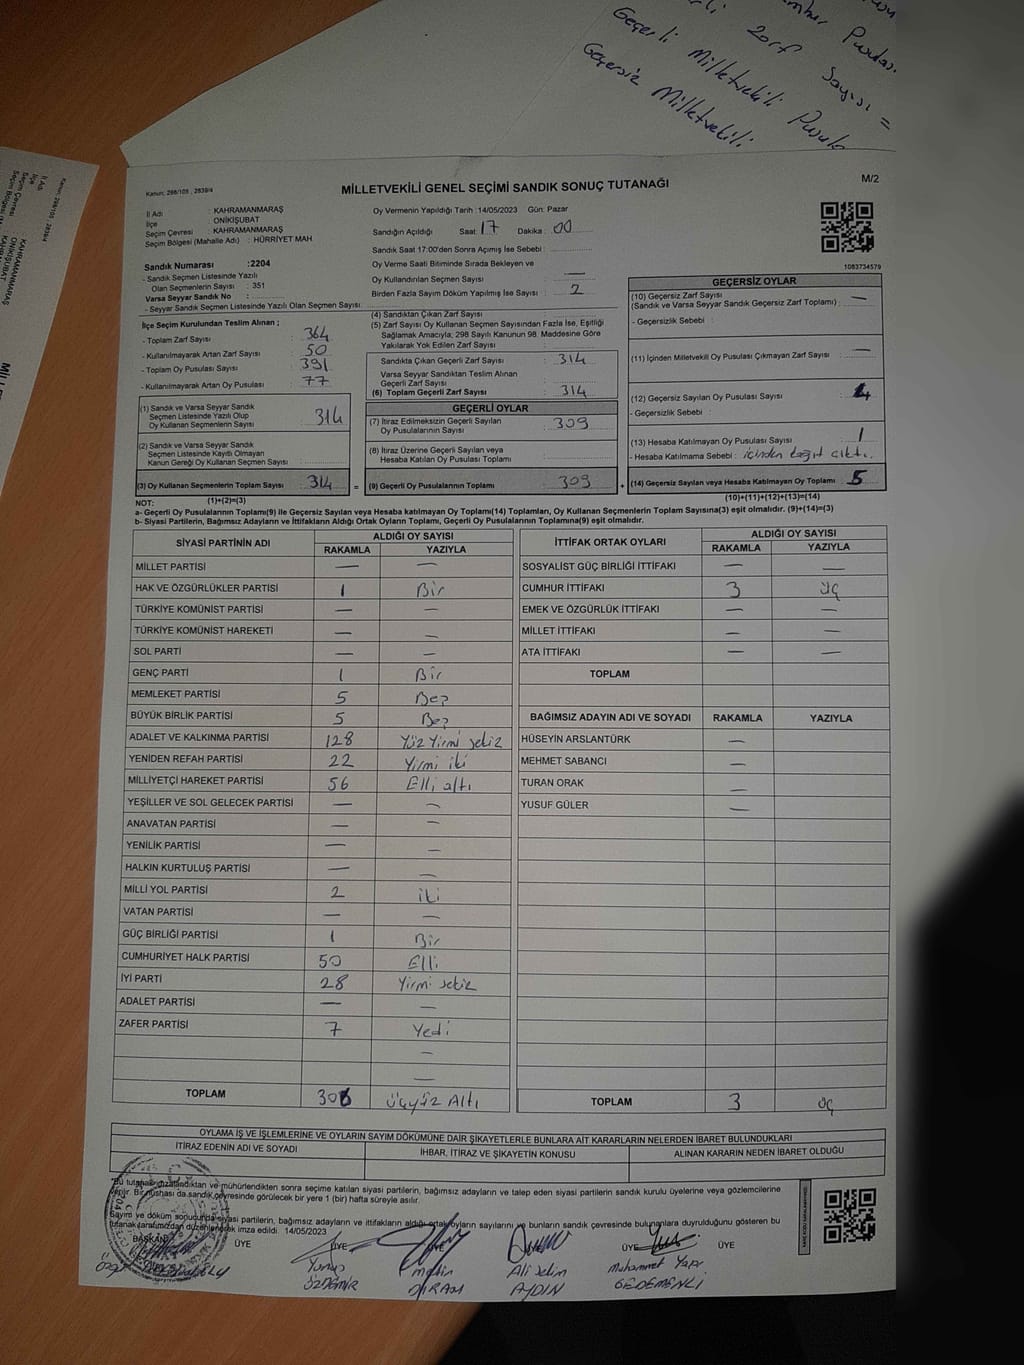 Geçerli Milletvekili
Geçersiz Milletvekili
Zarf Sayısı =
Kanun; 298/105 , 2839/4
MİLLETVEKİLİ GENEL SEÇİMİ SANDIK SONUÇ TUTANAĞI
M/2
İl Adı : KAHRAMANMARAŞ
İlçe : ONİKİŞUBAT
Seçim Çevresi : KAHRAMANMARAŞ
Seçim Bölgesi (Mahalle Adı) : HÜRRİYET MAH
Sandık Numarası :2204
- Sandık Seçmen Listesinde Yazılı
Olan Seçmenlerin Sayısı : 351
Varsa Seyyar Sandık No :
- Seyyar Sandık Seçmen Listesinde Yazılı Olan Seçmen Sayısı:
Oy Vermenin Yapıldığı Tarih :14/05/2023 Gün: Pazar
Sandığın Açıldığı Saat 17 Dakika : 00
Sandık Saat 17:00'den Sonra Açımış İse Sebebi :
Oy Verme Saati Bitiminde Sırada Bekleyen ve
Oy Kullandırılan Seçmen Sayısı : —
Birden Fazla Sayım Döküm Yapılmış İse Sayısı : 2
1083734579
İlçe Seçim Kurulundan Teslim Alınan ;
- Toplam Zarf Sayısı : 364
- Kullanılmayarak Artan Zarf Sayısı : 50
- Toplam Oy Pusulası Sayısı : 391
- Kullanılmayarak Artan Oy Pusulası : 77
(1) Sandık ve Varsa Seyyar Sandık
Seçmen Listesinde Yazılı Olup
Oy Kullanan Seçmenlerin Sayısı : 314
(2) Sandık ve Varsa Seyyar Sandık
Seçmen Listesinde Kayıtlı Olmayan
Kanun Gereği Oy Kullanan Seçmen Sayısı :
(3) Oy Kullanan Seçmenlerin Toplam Sayısı : 314 =
(4) Sandıktan Çıkan Zarf Sayısı :
(5) Zarf Sayısı Oy Kullanan Seçmen Sayısından Fazla İse, Eşitliği
Sağlamak Amacıyla, 298 Sayılı Kanunun 98. Maddesine Göre
Yakılarak Yok Edilen Zarf Sayısı :
Sandıkta Çıkan Geçerli Zarf Sayısı : 314
Varsa Seyyar Sandıktan Teslim Alınan
Geçerli Zarf Sayısı :
(6) Toplam Geçerli Zarf Sayısı : 314
GEÇERLİ OYLAR
(7) İtiraz Edilmeksizin Geçerli Sayılan
Oy Pusulalarının Sayısı : 309
(8) İtiraz Üzerine Geçerli Sayılan veya
Hesaba Katılan Oy Pusulası Toplamı :
(9) Geçerli Oy Pusulalarının Toplamı : 309 +
GEÇERSİZ OYLAR
(10) Geçersiz Zarf Sayısı
(Sandık ve Varsa Seyyar Sandık Geçersiz Zarf Toplamı) : —
- Geçersizlik Sebebi :
(11) İçinden Milletvekili Oy Pusulası Çıkmayan Zarf Sayısı : —
(12) Geçersiz Sayılan Oy Pusulası Sayısı : 4
- Geçersizlik Sebebi :
(13) Hesaba Katılmayan Oy Pusulası Sayısı : 1
- Hesaba Katılmama Sebebi : içinden kağıt çıktı.
(14) Geçersiz Sayılan veya Hesaba Katılmayan Oy Toplamı : 5
NOT: (1)+(2)=(3)
(10)+(11)+(12)+(13)=(14)
a- Geçerli Oy Pusulalarının Toplamı(9) ile Geçersiz Sayılan veya Hesaba katılmayan Oy Toplamı(14) Toplamları, Oy Kullanan Seçmenlerin Toplam Sayısına(3) eşit olmalıdır. (9)+(14)=(3)
b- Siyasi Partilerin, Bağımsız Adayların ve İttifakların Aldığı Ortak Oyların Toplamı, Geçerli Oy Pusulalarının Toplamına(9) eşit olmalıdır.
SİYASİ PARTİNİN ADI ALDIĞI OY SAYISI
RAKAMLA YAZIYLA
MİLLET PARTİSİ — —
HAK VE ÖZGÜRLÜKLER PARTİSİ 1 Bir
TÜRKİYE KOMÜNİST PARTİSİ — —
TÜRKİYE KOMÜNİST HAREKETİ — —
SOL PARTİ — —
GENÇ PARTİ 1 Bir
MEMLEKET PARTİSİ 5 Beş
BÜYÜK BİRLİK PARTİSİ 5 Beş
ADALET VE KALKINMA PARTİSİ 128 Yüz Yirmi sekiz
YENİDEN REFAH PARTİSİ 22 Yirmi iki
MİLLİYETÇİ HAREKET PARTİSİ 56 Elli altı
YEŞİLLER VE SOL GELECEK PARTİSİ — —
ANAVATAN PARTİSİ — —
YENİLİK PARTİSİ — —
HALKIN KURTULUŞ PARTİSİ — —
MİLLİ YOL PARTİSİ 2 iki
VATAN PARTİSİ — —
GÜÇ BİRLİĞİ PARTİSİ 1 Bir
CUMHURİYET HALK PARTİSİ 50 Elli
İYİ PARTİ 28 Yirmi sekiz
ADALET PARTİSİ — —
ZAFER PARTİSİ 7 Yedi
—
—
TOPLAM 306 Üçyüz Altı
İTTİFAK ORTAK OYLARI ALDIĞI OY SAYISI
RAKAMLA YAZIYLA
SOSYALİST GÜÇ BİRLİĞİ İTTİFAKI — —
CUMHUR İTTİFAKI 3 üç
EMEK VE ÖZGÜRLÜK İTTİFAKI — —
MİLLET İTTİFAKI — —
ATA İTTİFAKI — —
TOPLAM
BAĞIMSIZ ADAYIN ADI VE SOYADI RAKAMLA YAZIYLA
HÜSEYİN ARSLANTÜRK —
MEHMET SABANCI —
TURAN ORAK —
YUSUF GÜLER —
TOPLAM 3 üç
OYLAMA İŞ VE İŞLEMLERİNE VE OYLARIN SAYIM DÖKÜMÜNE DAİR ŞİKAYETLERLE BUNLARA AİT KARARLARIN NELERDEN İBARET BULUNDUKLARI
İTİRAZ EDENİN ADI VE SOYADI İHBAR, İTİRAZ VE ŞİKAYETİN KONUSU ALINAN KARARIN NEDEN İBARET OLDUĞU
"Bu tutanak imzalandıktan ve mühürlendikten sonra seçime katılan siyasi partilerin, bağımsız adayların ve talep eden siyasi partilerin sandık kurulu üyelerine veya gözlemcilerine
verilir. Bir nüshası da sandık çevresinde görülecek bir yere 1 (bir) hafta süreyle asılır.
Sayım ve döküm sonucunda siyasi partilerin, bağımsız adayların ve ittifakların aldığı ortak oyların sayılarını ve bunların sandık çevresinde bulunanlara duyrulduğunu gösteren bu
tutanak tarafımızdan düzenlenerek imza edildi. 14/05/2023
BAŞKAN ÜYE ÜYE ÜYE ÜYE ÜYE
Yunus Metin Ali Selim Muhammet Yaşar
ÖZDEMİR AYDIN GEDEMENLİ